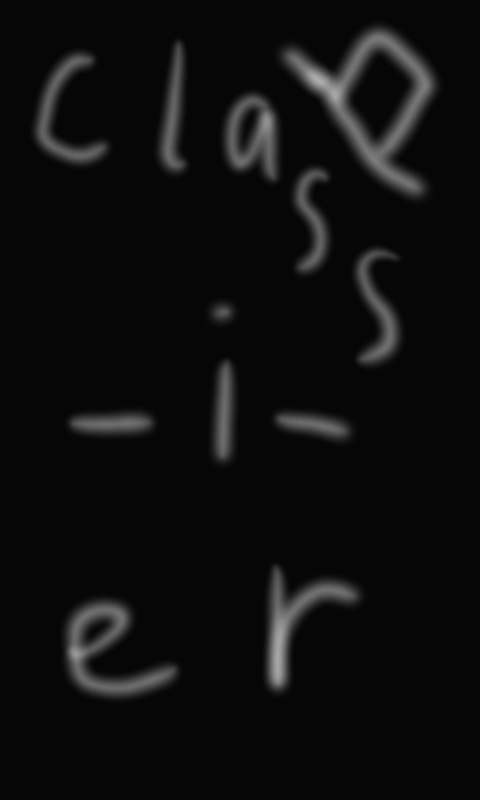 class
-i-
er